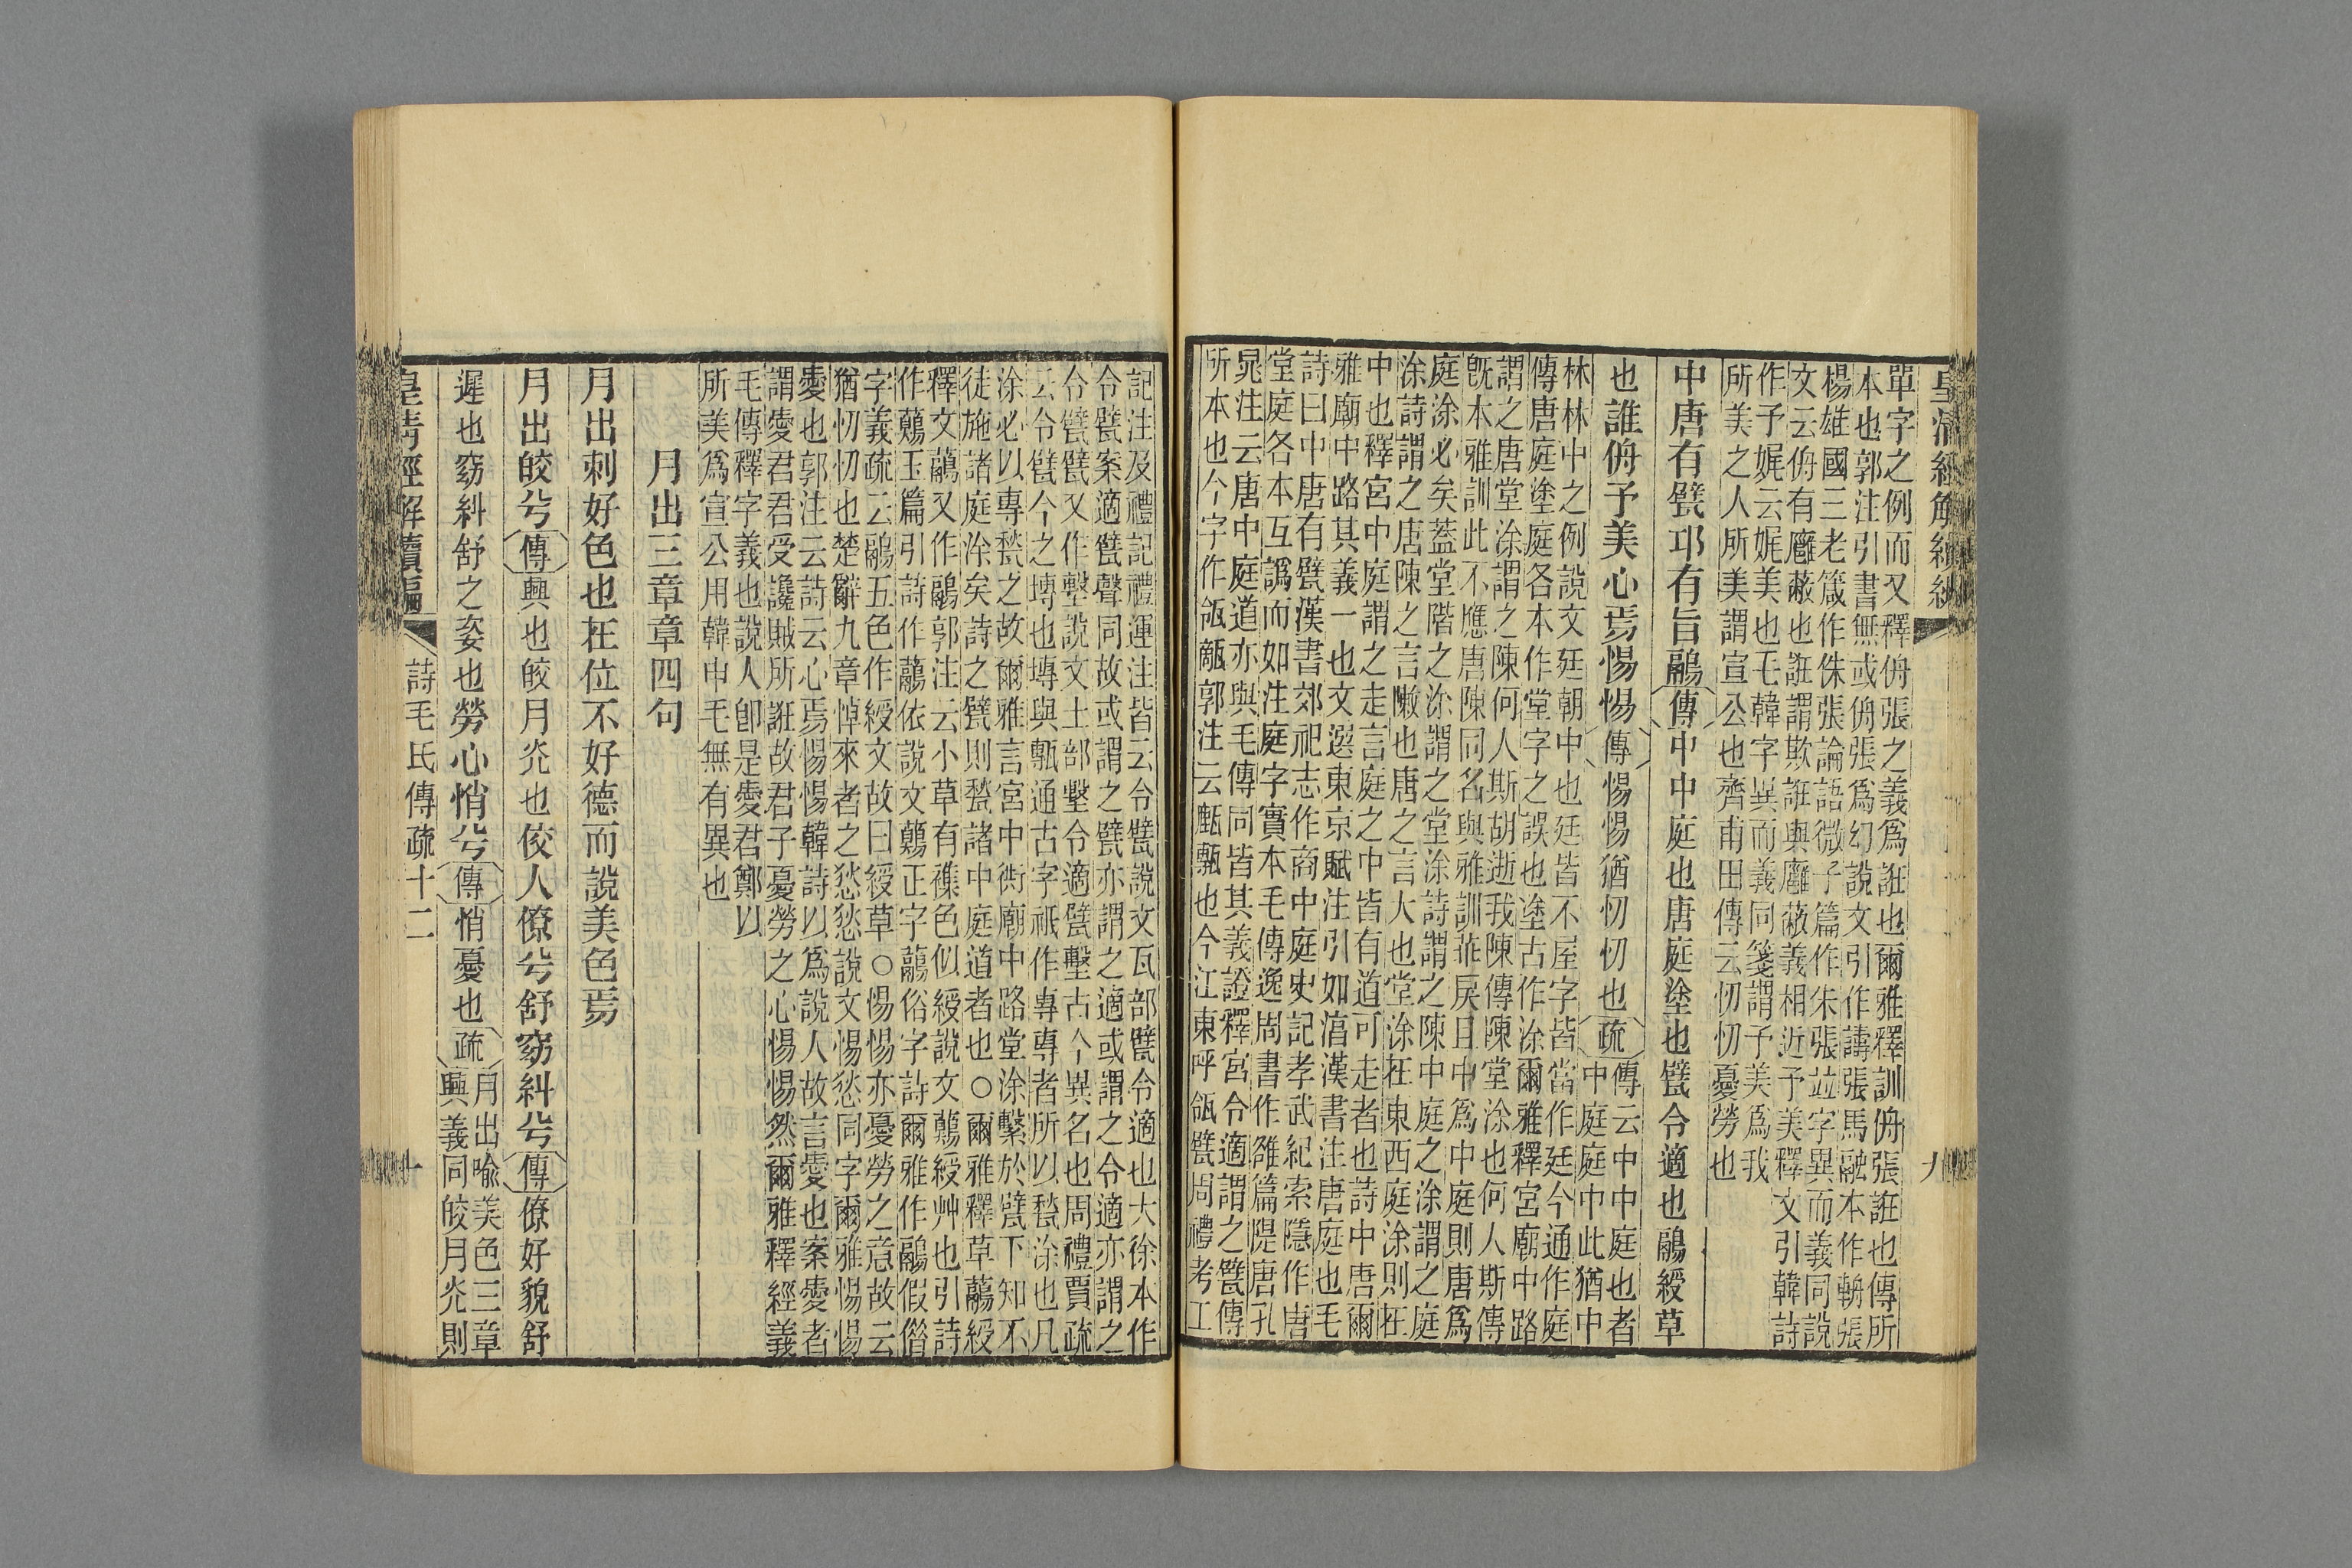 皇清經解續編
九
單字之例而又釋侜張之義爲誑也爾雅釋訓侜張誑也傳所
本也郭注引書無或侜張爲幻說文引作譸張馬融本作輈張
楊雄國三老箴作侏張論語微子篇作朱張竝字異而義同說
文云侜有廱蔽也誑謂欺誑與廱蔽義相近予美釋文引韓詩
作予娓云娓美也毛韓字異而義同箋謂予美爲我
所美之人所美謂宣公也齊甫田傳云忉忉憂勞也
中唐有甓邛有旨鷊傳中中庭也唐庭塗也甓令適也鷊綬草
也誰侜予美心焉惕惕傳惕惕猶忉忉也疏傳云中中庭也者
中庭庭中此猶中
林林中之例說文廷朝中也廷皆不屋字皆當作廷今通作庭
傳唐庭塗庭各本作堂字之誤也塗古作涂爾雅釋宮廟中路
謂之唐堂涂謂之陳何人斯胡逝我陳傳陳堂涂也何人斯傳
旣本雅訓此不應唐陳同名與雅訓茀戾且中爲中庭則唐爲
庭涂必矣蓋堂階之涂謂之堂涂詩謂之陳中庭之涂謂之庭
涂詩謂之唐陳之言敶也唐之言大也堂涂在東西庭涂則在
中也釋宮中庭謂之走言庭之中皆有道可走者也詩中唐爾
雅廟中路其義一也文選東京賦注引如淳漢書注唐庭也毛
詩曰中唐有甓漢書郊祀志作商中庭史記孝武紀索隱作唐
堂庭各本互譌而如注庭字實本毛傳逸周書作雒篇隄唐孔
晁注云唐中庭道亦與毛傳同皆其義證釋宮令適謂之甓傳
所本也今字作瓴甋郭注云㼾甎也今江東呼瓴甓周禮考工
記注及禮記禮運注皆云令甓說文瓦部甓令適也大徐本作
令甓案適甓聲同故或謂之甓亦謂之適或謂之令適亦謂之
令甓甓又作墼說文土部墼令適甓墼古今異名也周禮賈疏
云令甓今之塼也塼與甎通古字衹作專專者所以甃涂也凡
涂必以專甃之故爾雅言宮中衖廟中路堂涂繫於甓下知不
徒施諸庭涂矣詩之甓則甃諸中庭道者也○爾雅釋草虉綬
釋文虉又作鷊郭注云小草有襍色似綬說文虉綬艸也引詩
作虉玉篇引詩作虉依說文虉正字虉俗字詩爾雅作鷊假借
字義疏云鷊五色作綬文故曰綬草○惕惕亦憂勞之意故云
猶忉忉也楚辭九章悼來者之悐悐說文惕悐同字爾雅惕惕
愛也郭注云詩云心焉惕惕韓詩以爲說人故言愛也案愛者
謂愛君君受讒賊所誑故君子憂勞之心惕惕然爾雅釋經義
毛傳釋字義也說人卽是愛君鄭以
所美爲宣公用韓申毛無有異也
月出三章章四句
月出刺好色也在位不好德而說美色焉
月出皎兮傳興也皎月光也佼人僚兮舒窈糾兮傳僚好貌舒
遲也窈糾舒之姿也勞心悄兮傳悄憂也疏月出喻美色三章
興義同皎月光則
皇清經解續編
詩毛氏傳疏十二
十